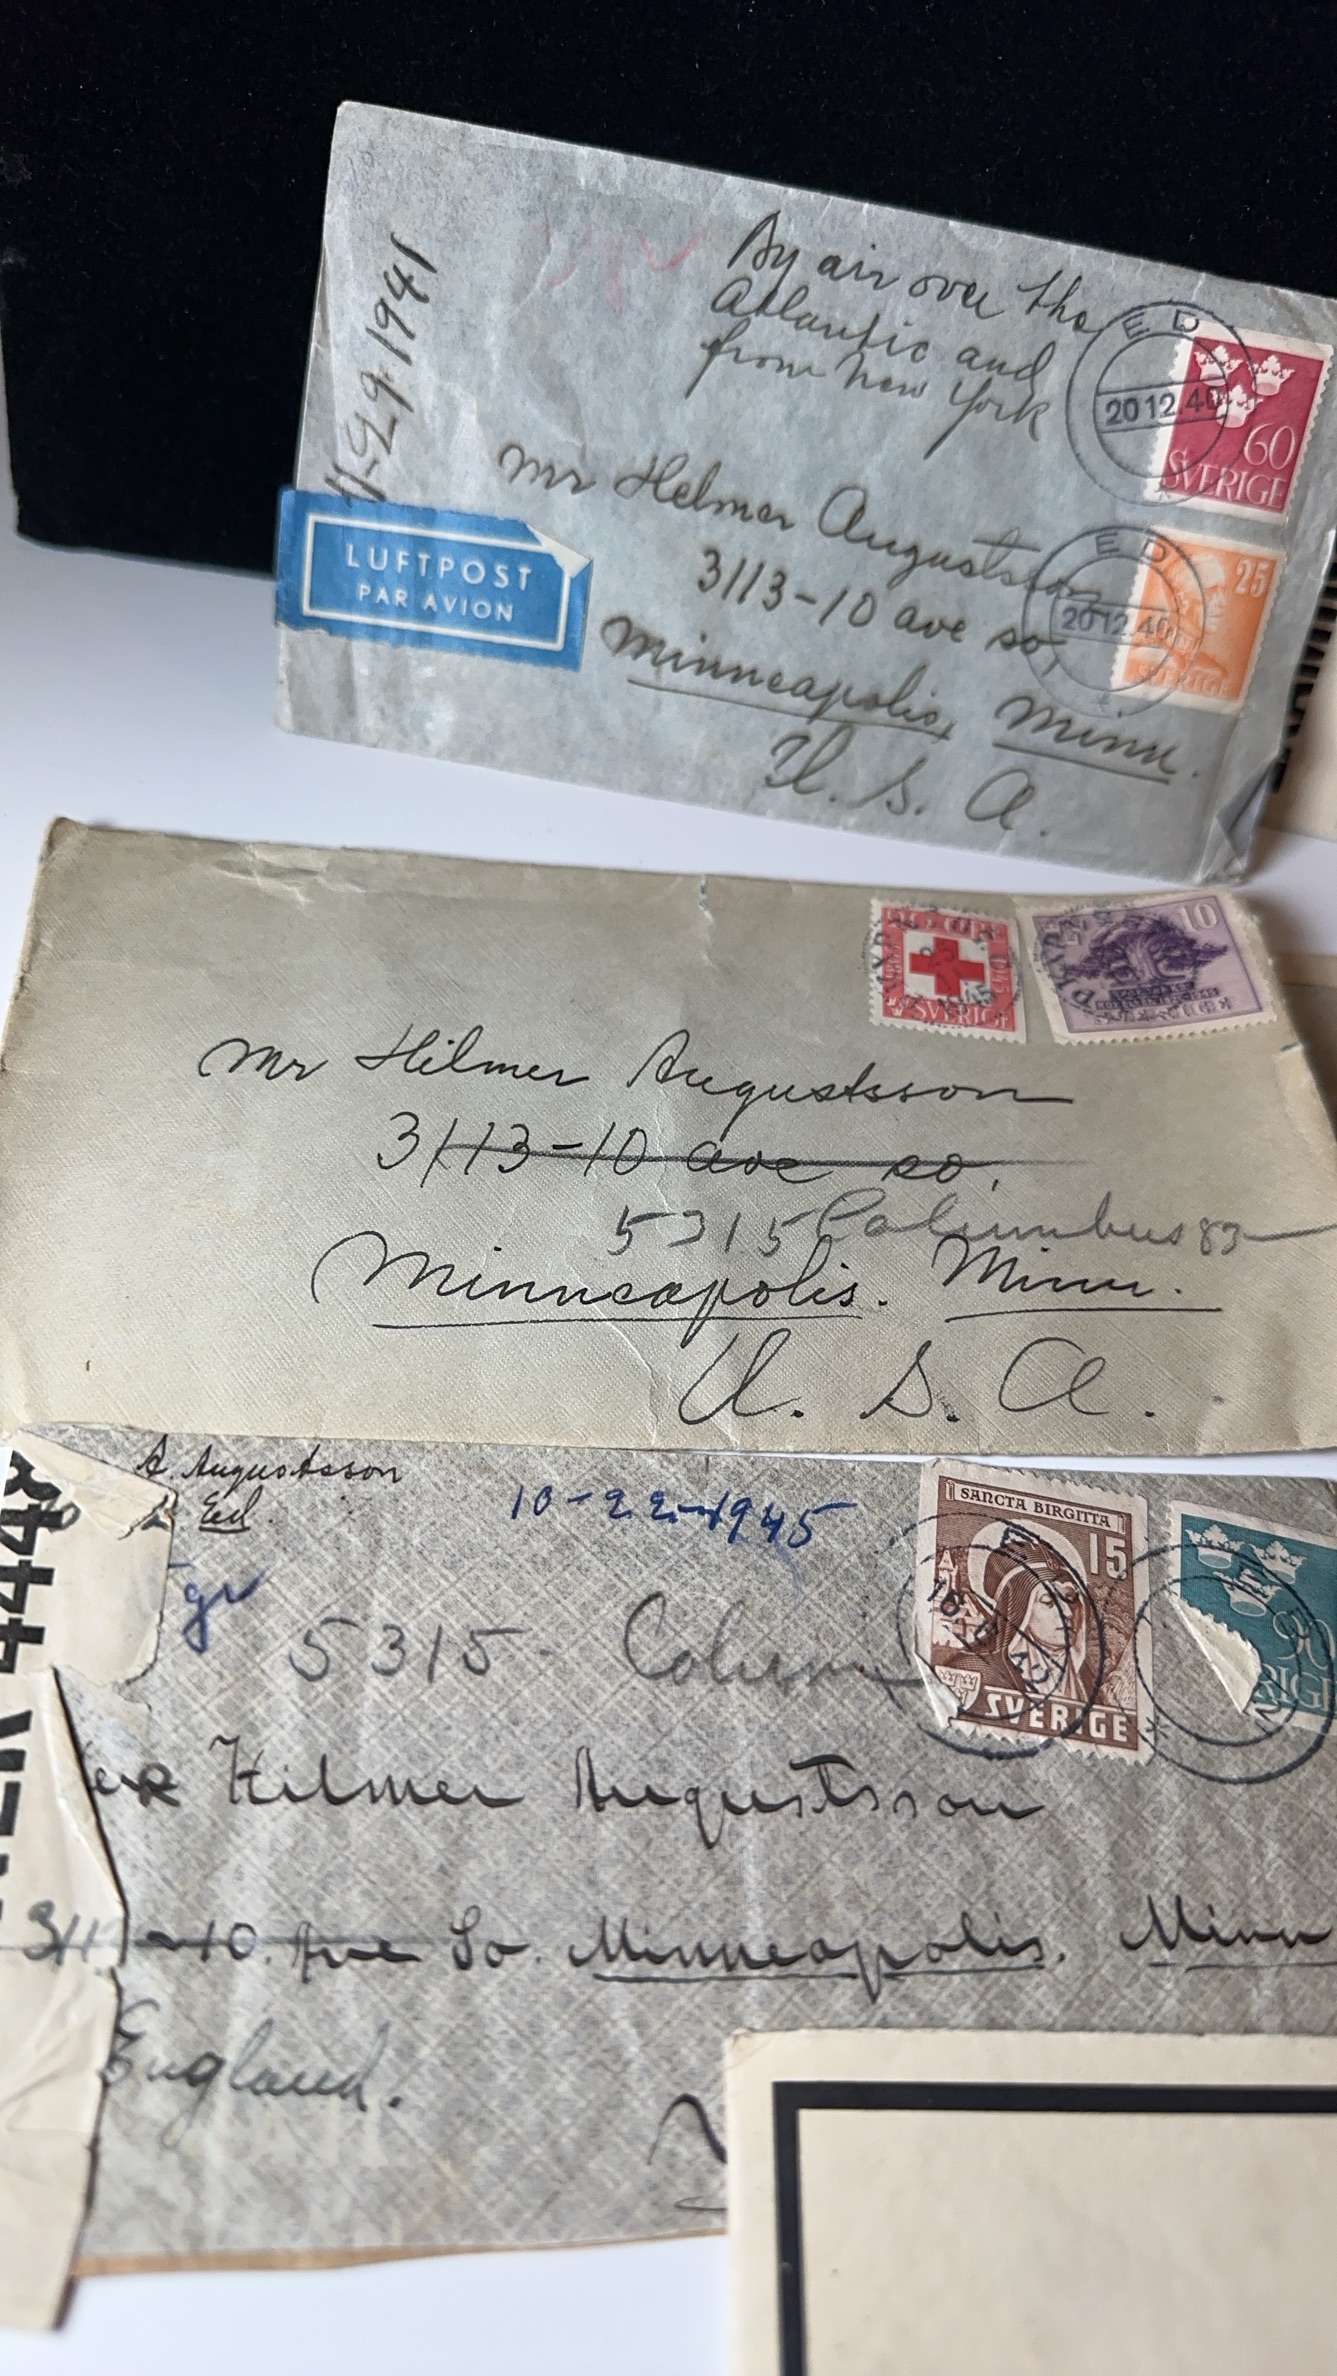 By air over the
Atlantic and
from New York
11-29-1941
ED
20 12.40
60
SVERIGE
Mr Helmer Augustsson
3113-10 ave so,
Minneapolis, Minn.
U. S. A.
LUFTPOST
PAR AVION
ED
20 12.40
25
SVERIGE
SVERIGE
10
Mr Hilmer Augustsson
3113-10 ave so.
5315 Columbus
Minneapolis. Minn.
U. S. A.
A. Augustsson
Ed.
10-22-1945
SANCTA BIRGITTA
15
SVERIGE
90
5315-
Hilmer Augustsson
-10. Ave So. Minneapolis. Minn
England.